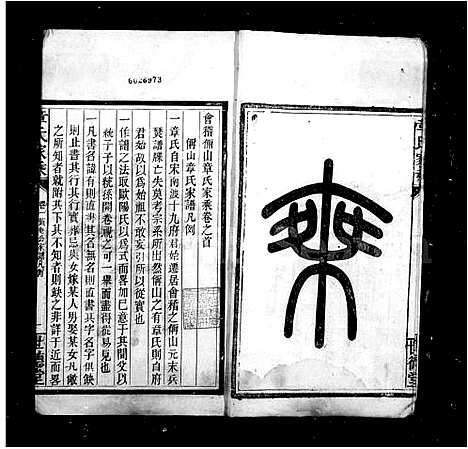 乘
會稽偁山章氏家乘卷之首
偁山章氏家譜凡例
一章氏自宋南渡十九府君始遷居會稽之偁山元末兵
燹譜牒亡失莫考宗系所出然偁山之有章氏則自府
君始故以為始祖不敢妄引所以從實也
一作譜之法取歐陽氏以為式而畧加已意于其間父以
統子子以統孫開卷視之可一舉而盡得從易見也
一凡書名諱有則直書其名無名則直書其字名字俱缺
則止書其行其行實雍忌與女嫁某人男娶某女凡載
之所知者就附其下其不知者則缺之非詳于近而畧
6026973
章氏家乘